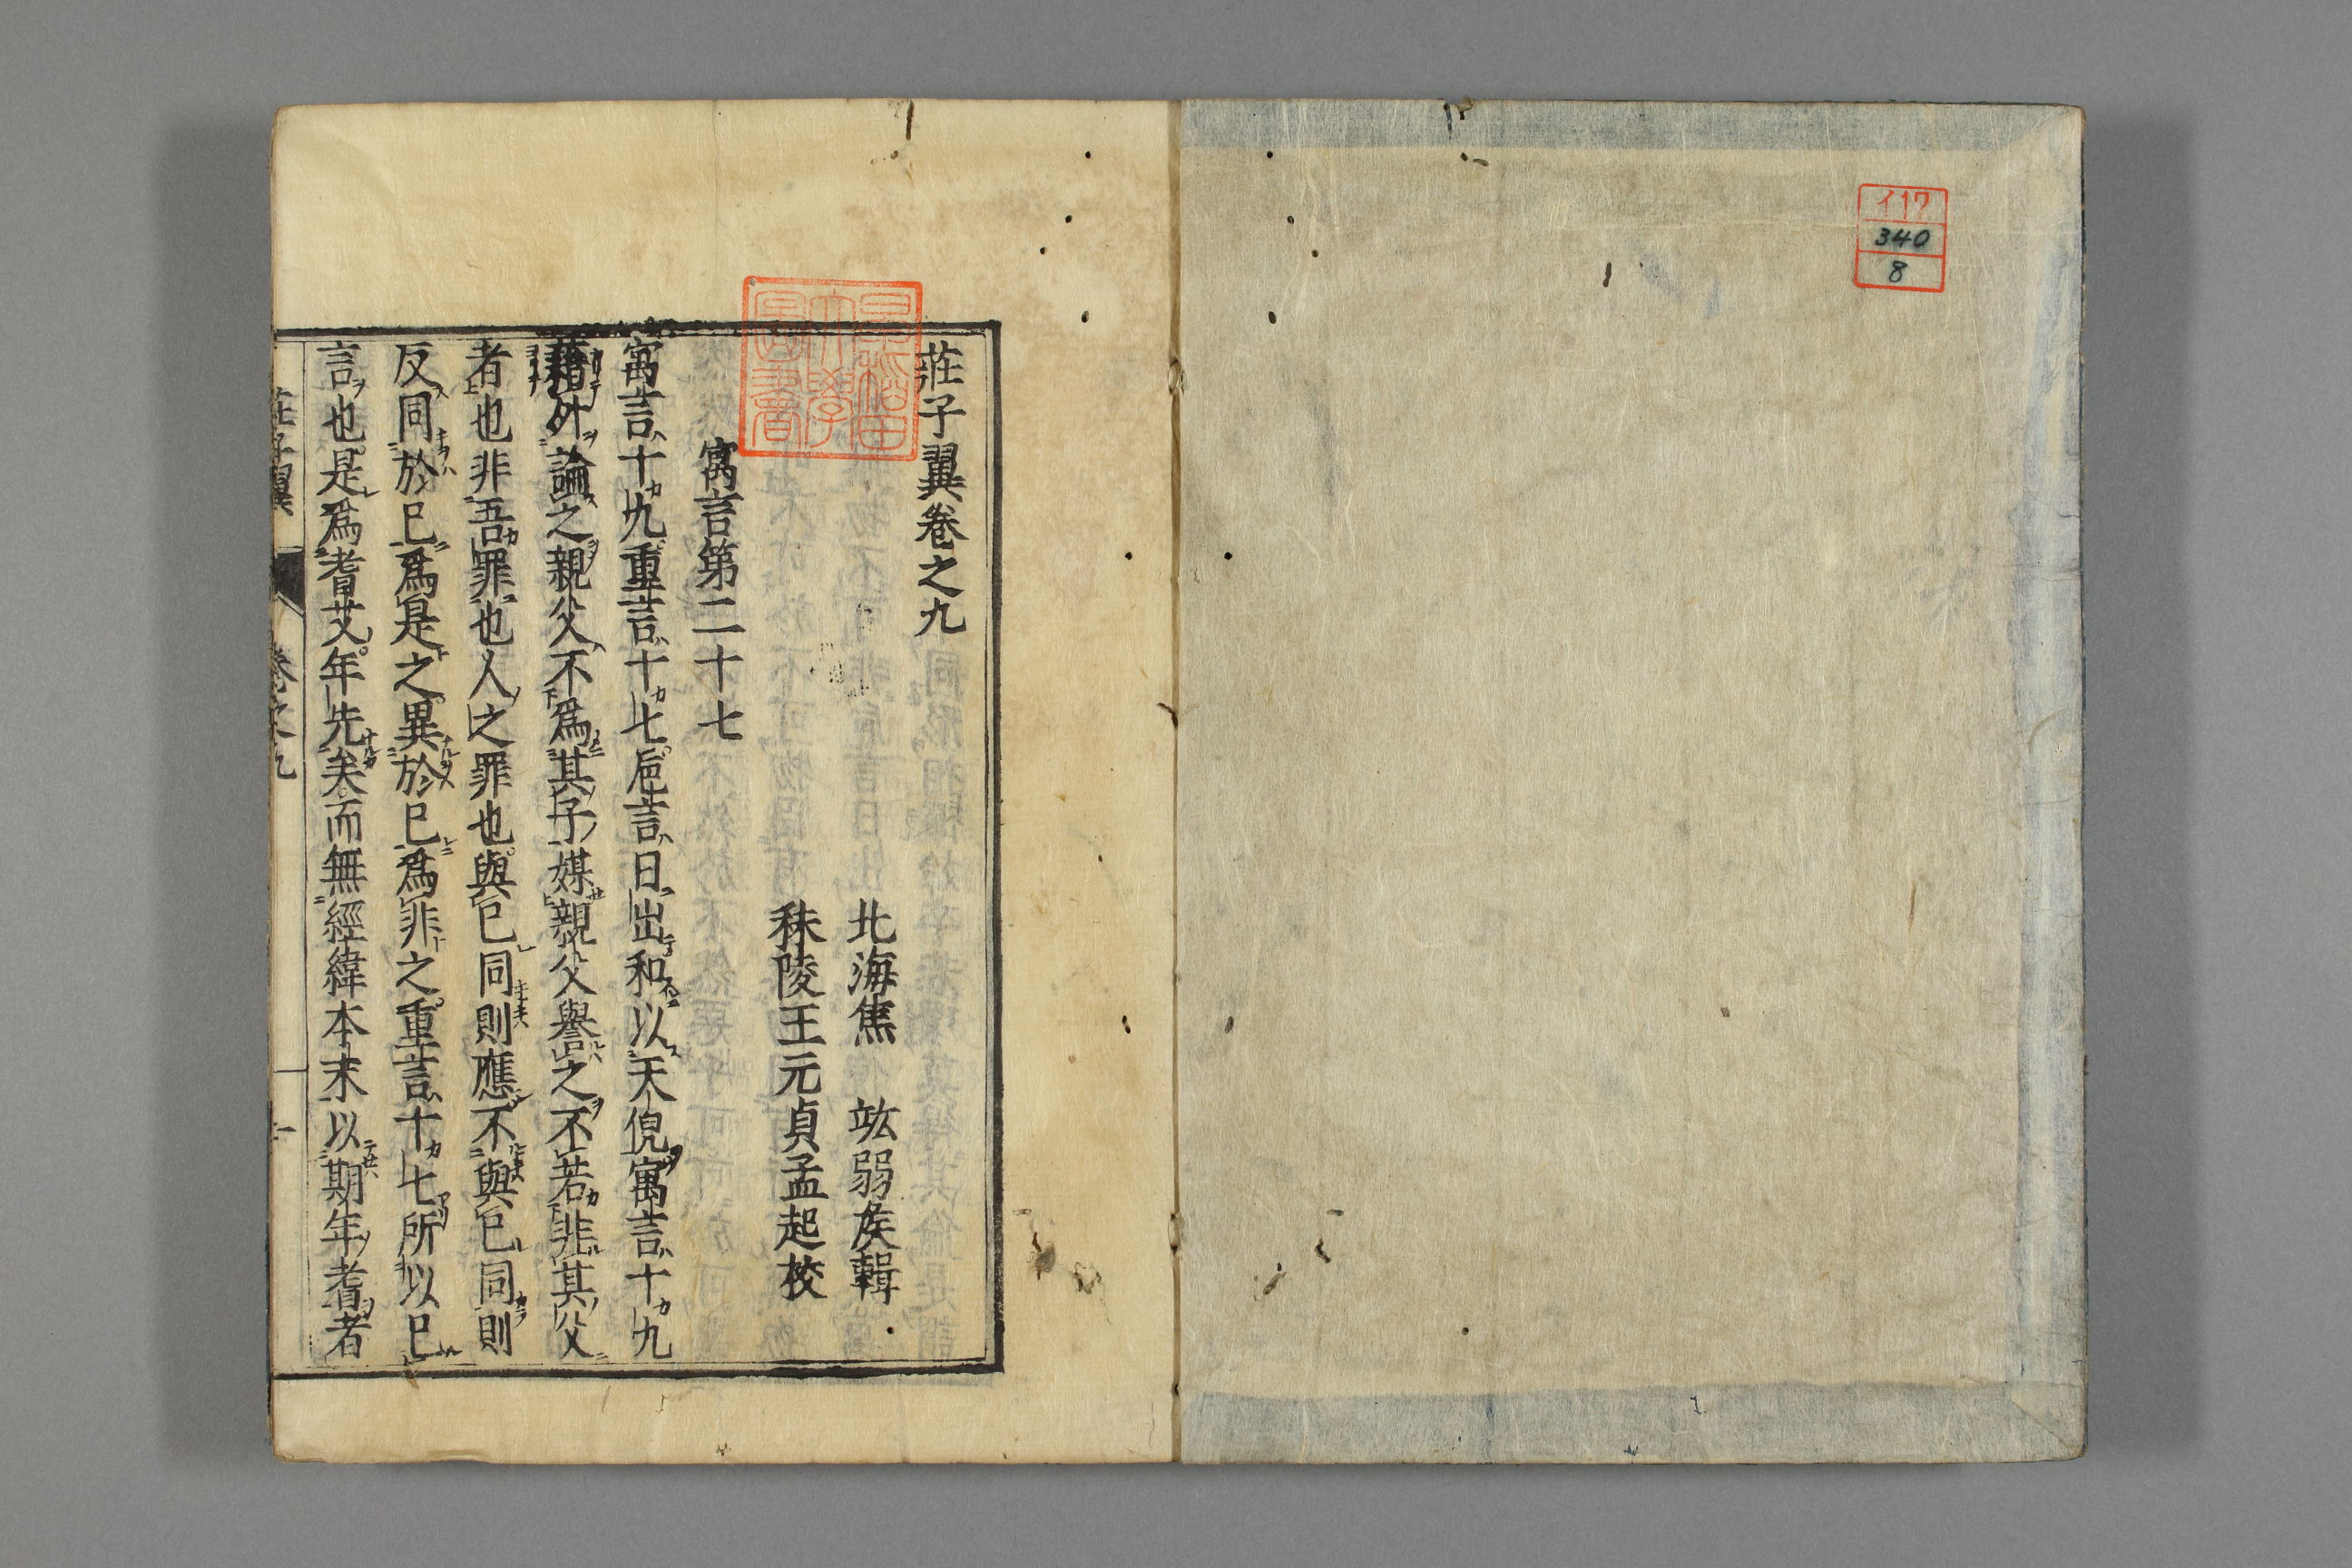 イ17
340
8
莊子翼卷之九
北海焦 竑弱侯輯
秣陵王元貞孟起校
早稲田
大學
圖書
寓言第二十七
寓言十九重言十七巵言日出和以天倪寓言十九
藉外論之親父不爲其子媒親父譽之不若非其父
者也非吾罪也人之罪也與已同則應不與已同則
反同於已爲是之異於已爲非之重言十七所以已
言也是爲耆艾年先矣而無經緯本末以期年耆者
莊子翼 卷之九 一